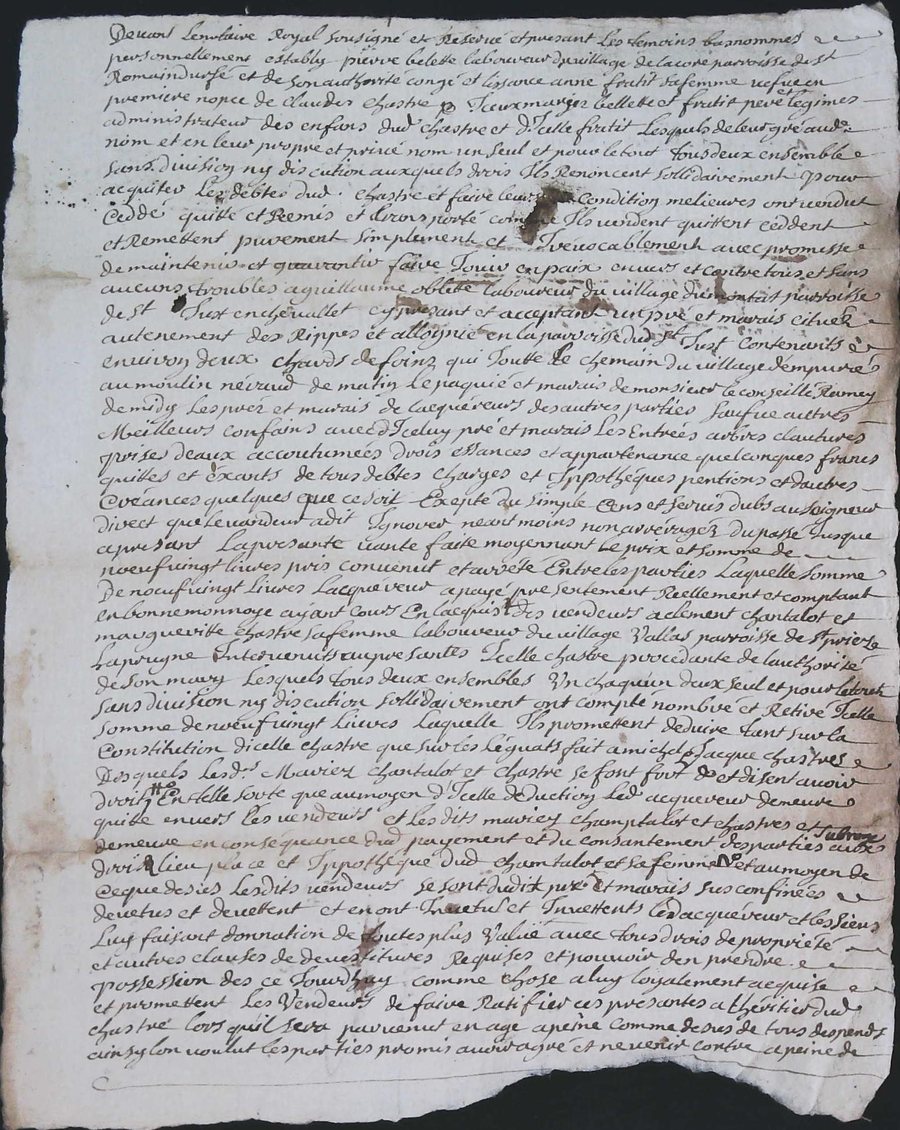 Devant Le notaire Royal Sousigné et Réservé et presant Les temoins bas nommes
personnellement estably pierre belette laboureur du village de lacore parroisse de St
Romain durfé et de son authorite congé et lissance anne fratit sa femme vefue en
premiere nopce de claudes chastre Iceux mariez bellette et fratit pere et legimes
administrateur des enfans dud chastre et d'Icelle fratit Lesquels de leur gré aud
nom et en leur propre et privé nom un seul et pour le tout tous deux ensemble
sans division ny discution auxquels drois Ils Renoncent sollidairement pour
acquiter Les debtes dud chastre et faire leur condition melieures ont vendut
Ceddé quitte et Remis et Ils vendent quittent ceddent
et Remettent purement simplement et Irevocablement avec promesse
de maintenir et guarantir faire Jouir en paix envers et contre tous et sans
aucuns troubles a guillaume oblete laboureur du village du montait parroisse
de St Just en chevallet cy presant et acceptant un pré et marais cituéz
au tenement des Rippes et en la parroisse dud St Just contenants
environ deux chards de foinz qui Joutte Le chemain du village dempuré
au moulin néraud de matin Le paquié et marais de monsieur le conseillé Ramey
de midy Les préz et marais de lacquéreurs des autres parties sauf ue autres
Meilleurs confains avec d'Iceluy pré et marais Les Entrées arbres clautures
prise deaux accoutumées drois essances et appartenance quelconques francs
quittes et exants de tous debtes charges et Ippothéques pentions et dautres
Créances quelques que ce soit Exepté du simple Cens et servis dubs au seigneur
direct que le vandeur a dit Ignorer neantmoins non arreragez du passé Jusque
a presant La presante vante faite moyennant Le prix et somme de
noeuf vingt livres pris convenut et arrété Entre les parties Laquelle somme
De noeuf vingt Livres Lacquéreur a payé presentement Réellement et comptant
en bonne monnoye ayant cours En lacquis des vendeurs a clement chantalot et
margueritte chastre sa femme laboureur du village Vallas parroisse de St priest
Laprugne Intervenuts au presantes Icelle chastre procedante de lauthorité
de son mary Lesquels tous deux ensembles Un chaquun deux seul et pour le tout
sans division ny discution sollidairement ont compté nombré et Retiré Icelle
somme de noeuf vingt Livres Laquelle Ils promettent deduire tant sur la
Constitution dicelle chastre que sur les Léguats fait a michel Jacque chastres
Desquels Lesds Mariez chantalot et chastre se font fort et disent avoir
droit En telle sorte que au moyen d'Icelle deduction Led acquereur demeure
quitte envers les vendeurs et les dits mariez chamtalot et chastres et
demeure en conséquance dud payement et du consantement des parties
drois Lieu place et Ippothéque dud chamtalot et se femme et au moyen de
Ce que desus Lesdits vandeurs se sont dudit pré et marais sus confinées
devetus et devettent et en ont Invetut et Invettents led acquéreur et les siens
Luy faisant donnation de toutes plus Value avec tous drois de propriété
et autres clauses de devestitures Requises et pouvoir d'en prendre
possession des ce Jourdhuy comme chose a luy loyalement acquise
et promettent Les Vendeurs de faire Ratifier ces presantes a lhéritier dud
chastre lors quil sera parvenut en age a peine comme desus de tous despends
ainsy lon voulut les parties promis avoir agré et ne venir contre a peine de